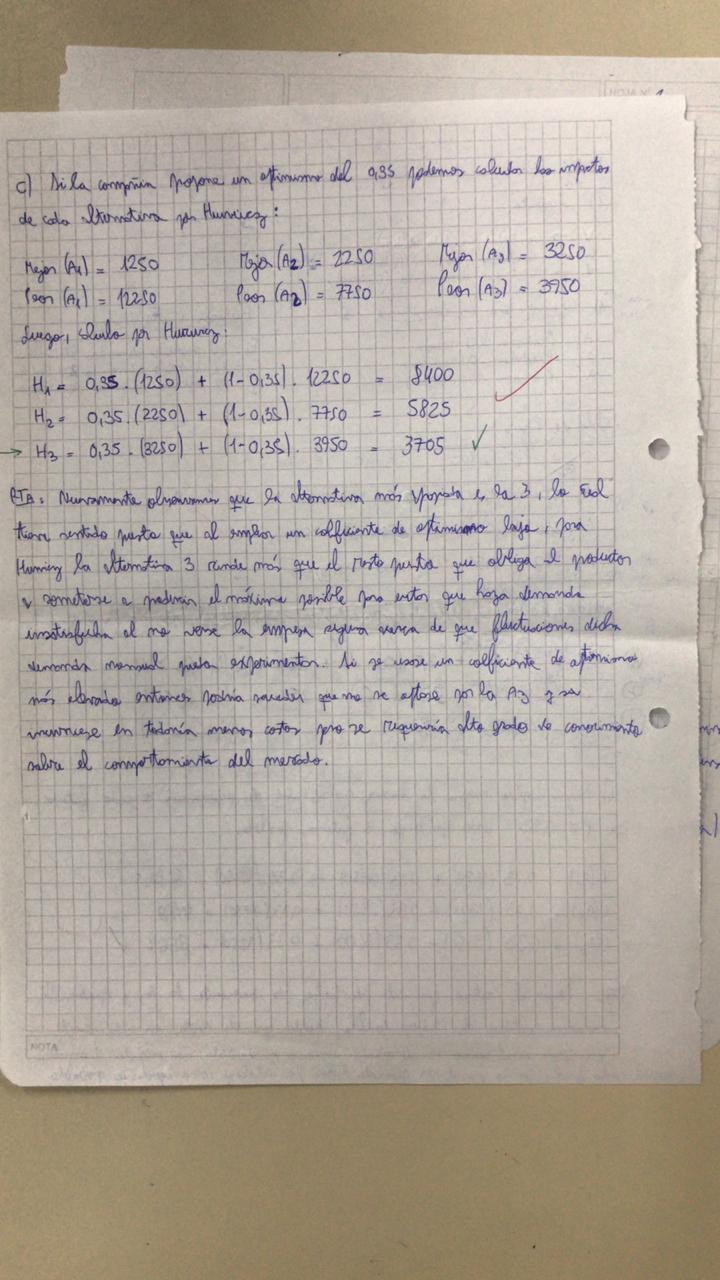 c) Si la compañía propone un optimismo del 0,35 podemos calcular los impactos
de cada alternativa por Hurwicz:
Mejor (A1) = 1250 Mejor (A2) = 2250 Mejor (A3) = 3250
Peor (A1) = 12250 Peor (A2) = 7750 Peor (A3) = 3950
Luego, calculo por Hurwicz:
H1 = 0,35 . (1250) + (1-0,35) . 12250 = 8400
H2 = 0,35 . (2250) + (1-0,35) . 7750 = 5825
→ H3 = 0,35 . (3250) + (1-0,35) . 3950 = 3705
RTA: Nuevamente observamos que la alternativa más apropiada es la 3, lo cual
tiene sentido puesto que al emplear un coeficiente de optimismo bajo, para
Hurwicz la alternativa 3 rinde más que el resto puesto que obliga al productor
a someterse a producir el máximo posible para evitar que haya demanda
insatisfecha al no verse la empresa segura acerca de que fluctuaciones dicha
demanda mensual pueda experimentar. Si se usase un coeficiente de optimismo
más elevado entonces podría suceder que no se optase por la A3 y se
incurriese en todavía menos costos pero se requeriría alto grado de conocimiento
sobre el comportamiento del mercado.
NOTA